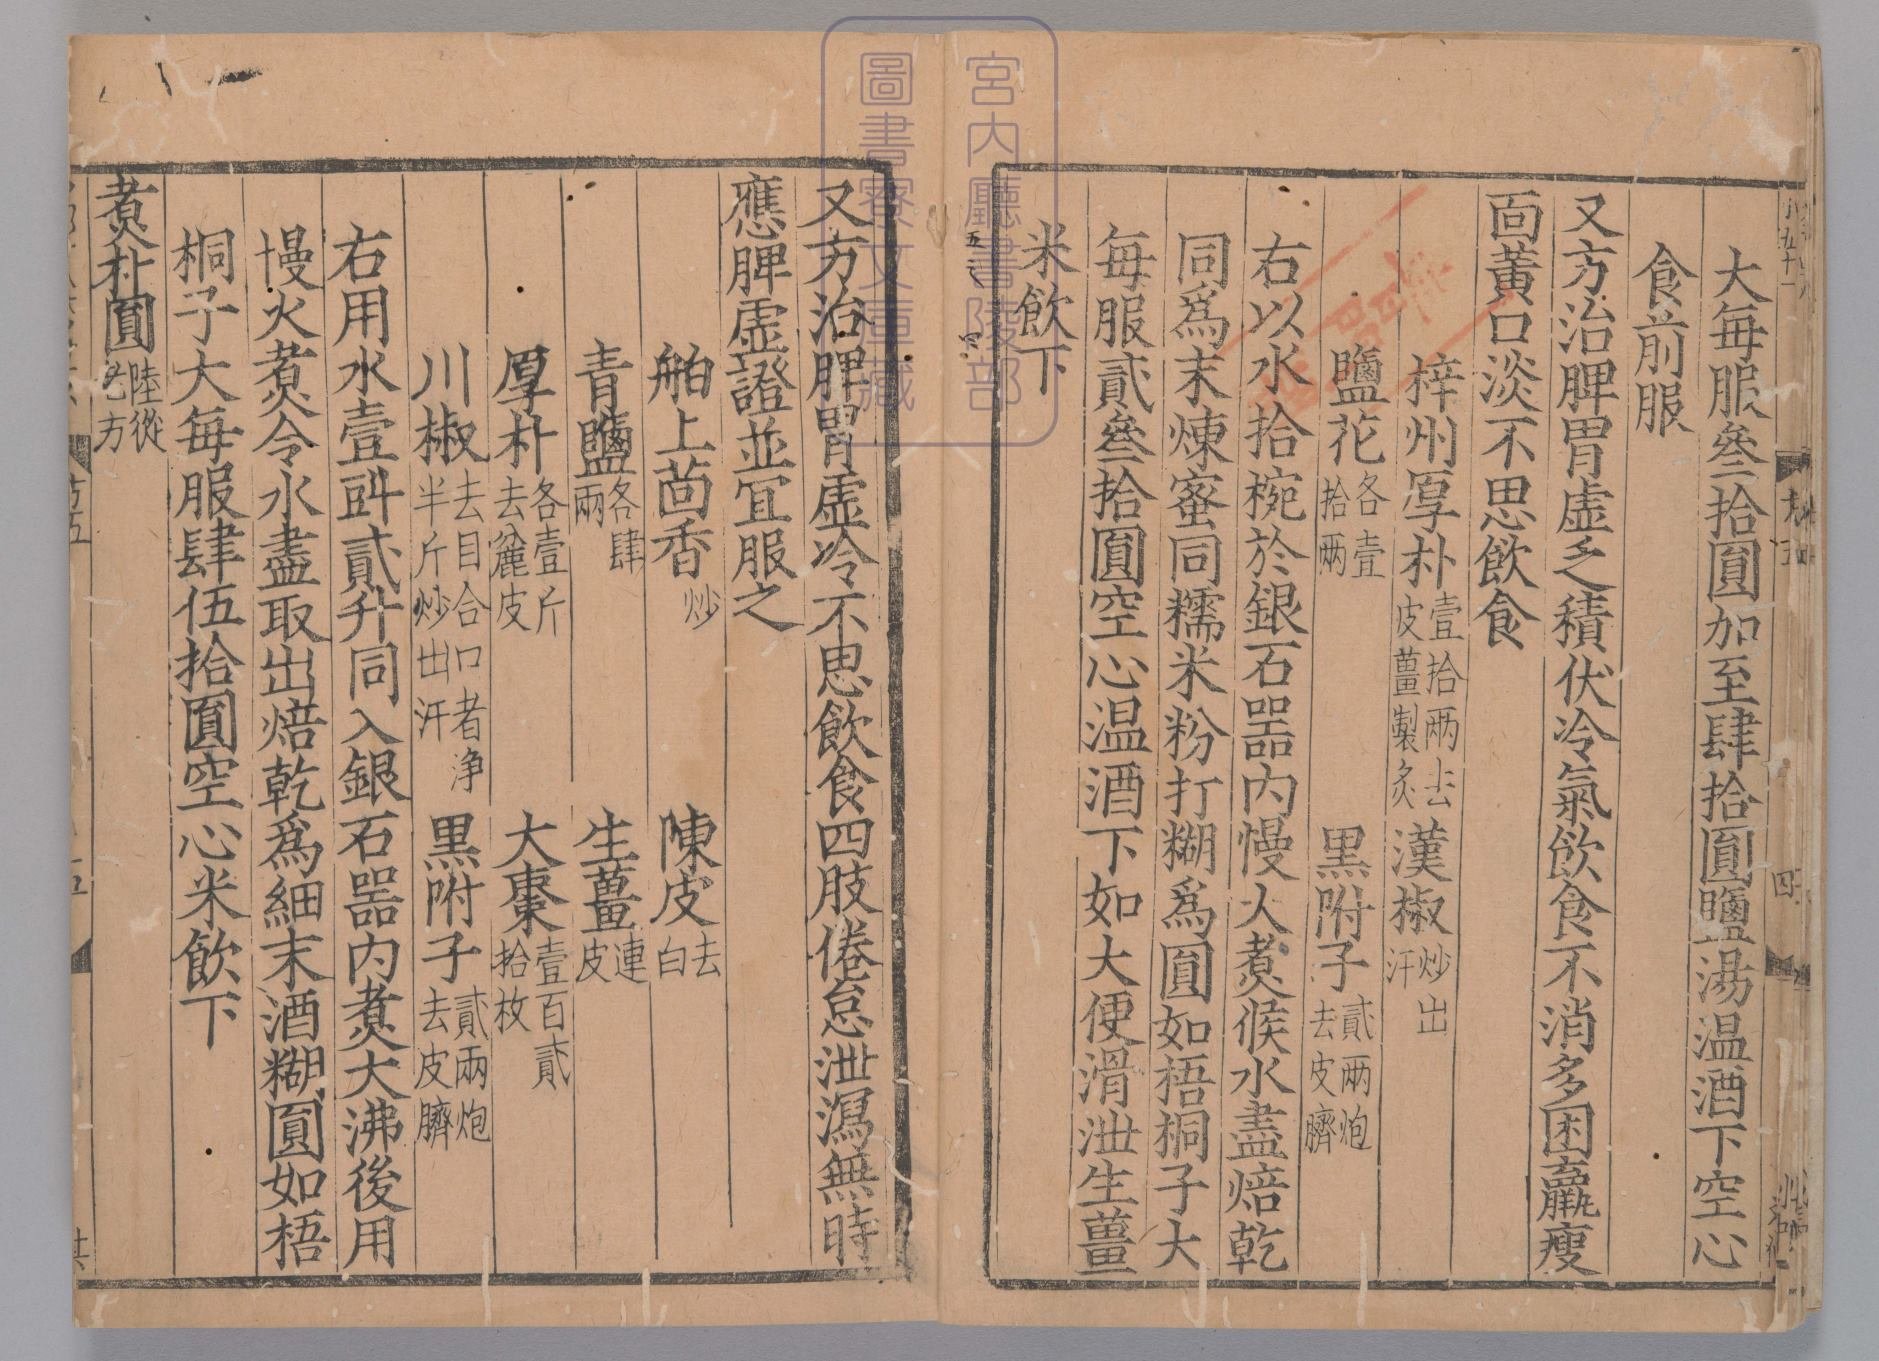 大每服叄拾圓加至肆拾圓鹽湯温酒下空心
食前服
又方治脾胃虛乏積伏冷氣飲食不消多困羸瘦
面黃口淡不思飲食
梓州厚朴壹拾兩去皮薑製炙 漢椒炒出汗
鹽花各壹拾兩 黑附子貳兩炮去皮臍
右以水拾椀於銀石器內慢火煮候水盡焙乾
同爲末煉蜜同糯米粉打糊爲圓如梧桐子大
每服貳叄拾圓空心温酒下如大便滑泄生薑
米飲下
又方治脾胃虛冷不思飲食四肢倦怠泄瀉無時
應脾虛證並宜服之
舶上茴香炒 陳皮去白
青鹽各肆兩 生薑連皮
厚朴各壹斤去麁皮 大棗壹百貳拾枚
川椒去目合口者淨半斤炒出汗 黑附子貳兩炮去皮臍
右用水壹㪷貳升同入銀石器內煮大沸後用
慢火煮令水盡取出焙乾爲細末酒糊圓如梧
桐子大每服肆伍拾圓空心米飲下
煮朴圓陸從老方
宮內廳書陵部
圖書寮文庫藏